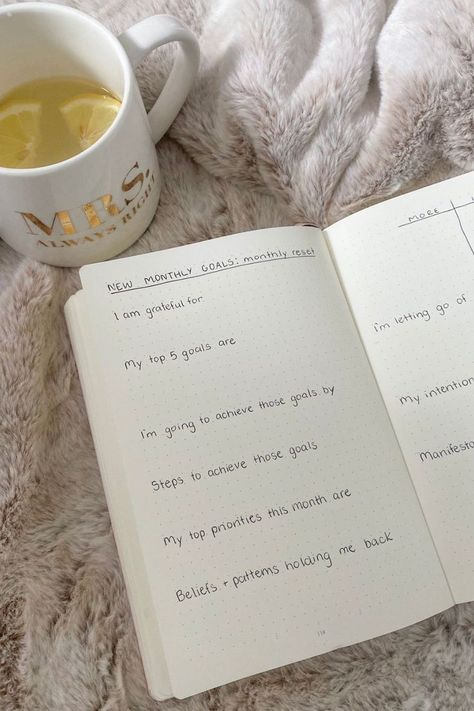 MRS.
ALWAYS RIGHT
NEW MONTHLY GOALS: monthly reset
I am grateful for
My top 5 goals are
I'm going to achieve those goals by
Steps to achieve those goals
My top priorities this month are
Beliefs + patterns holding me back
MORE
I'm letting go of
My intention